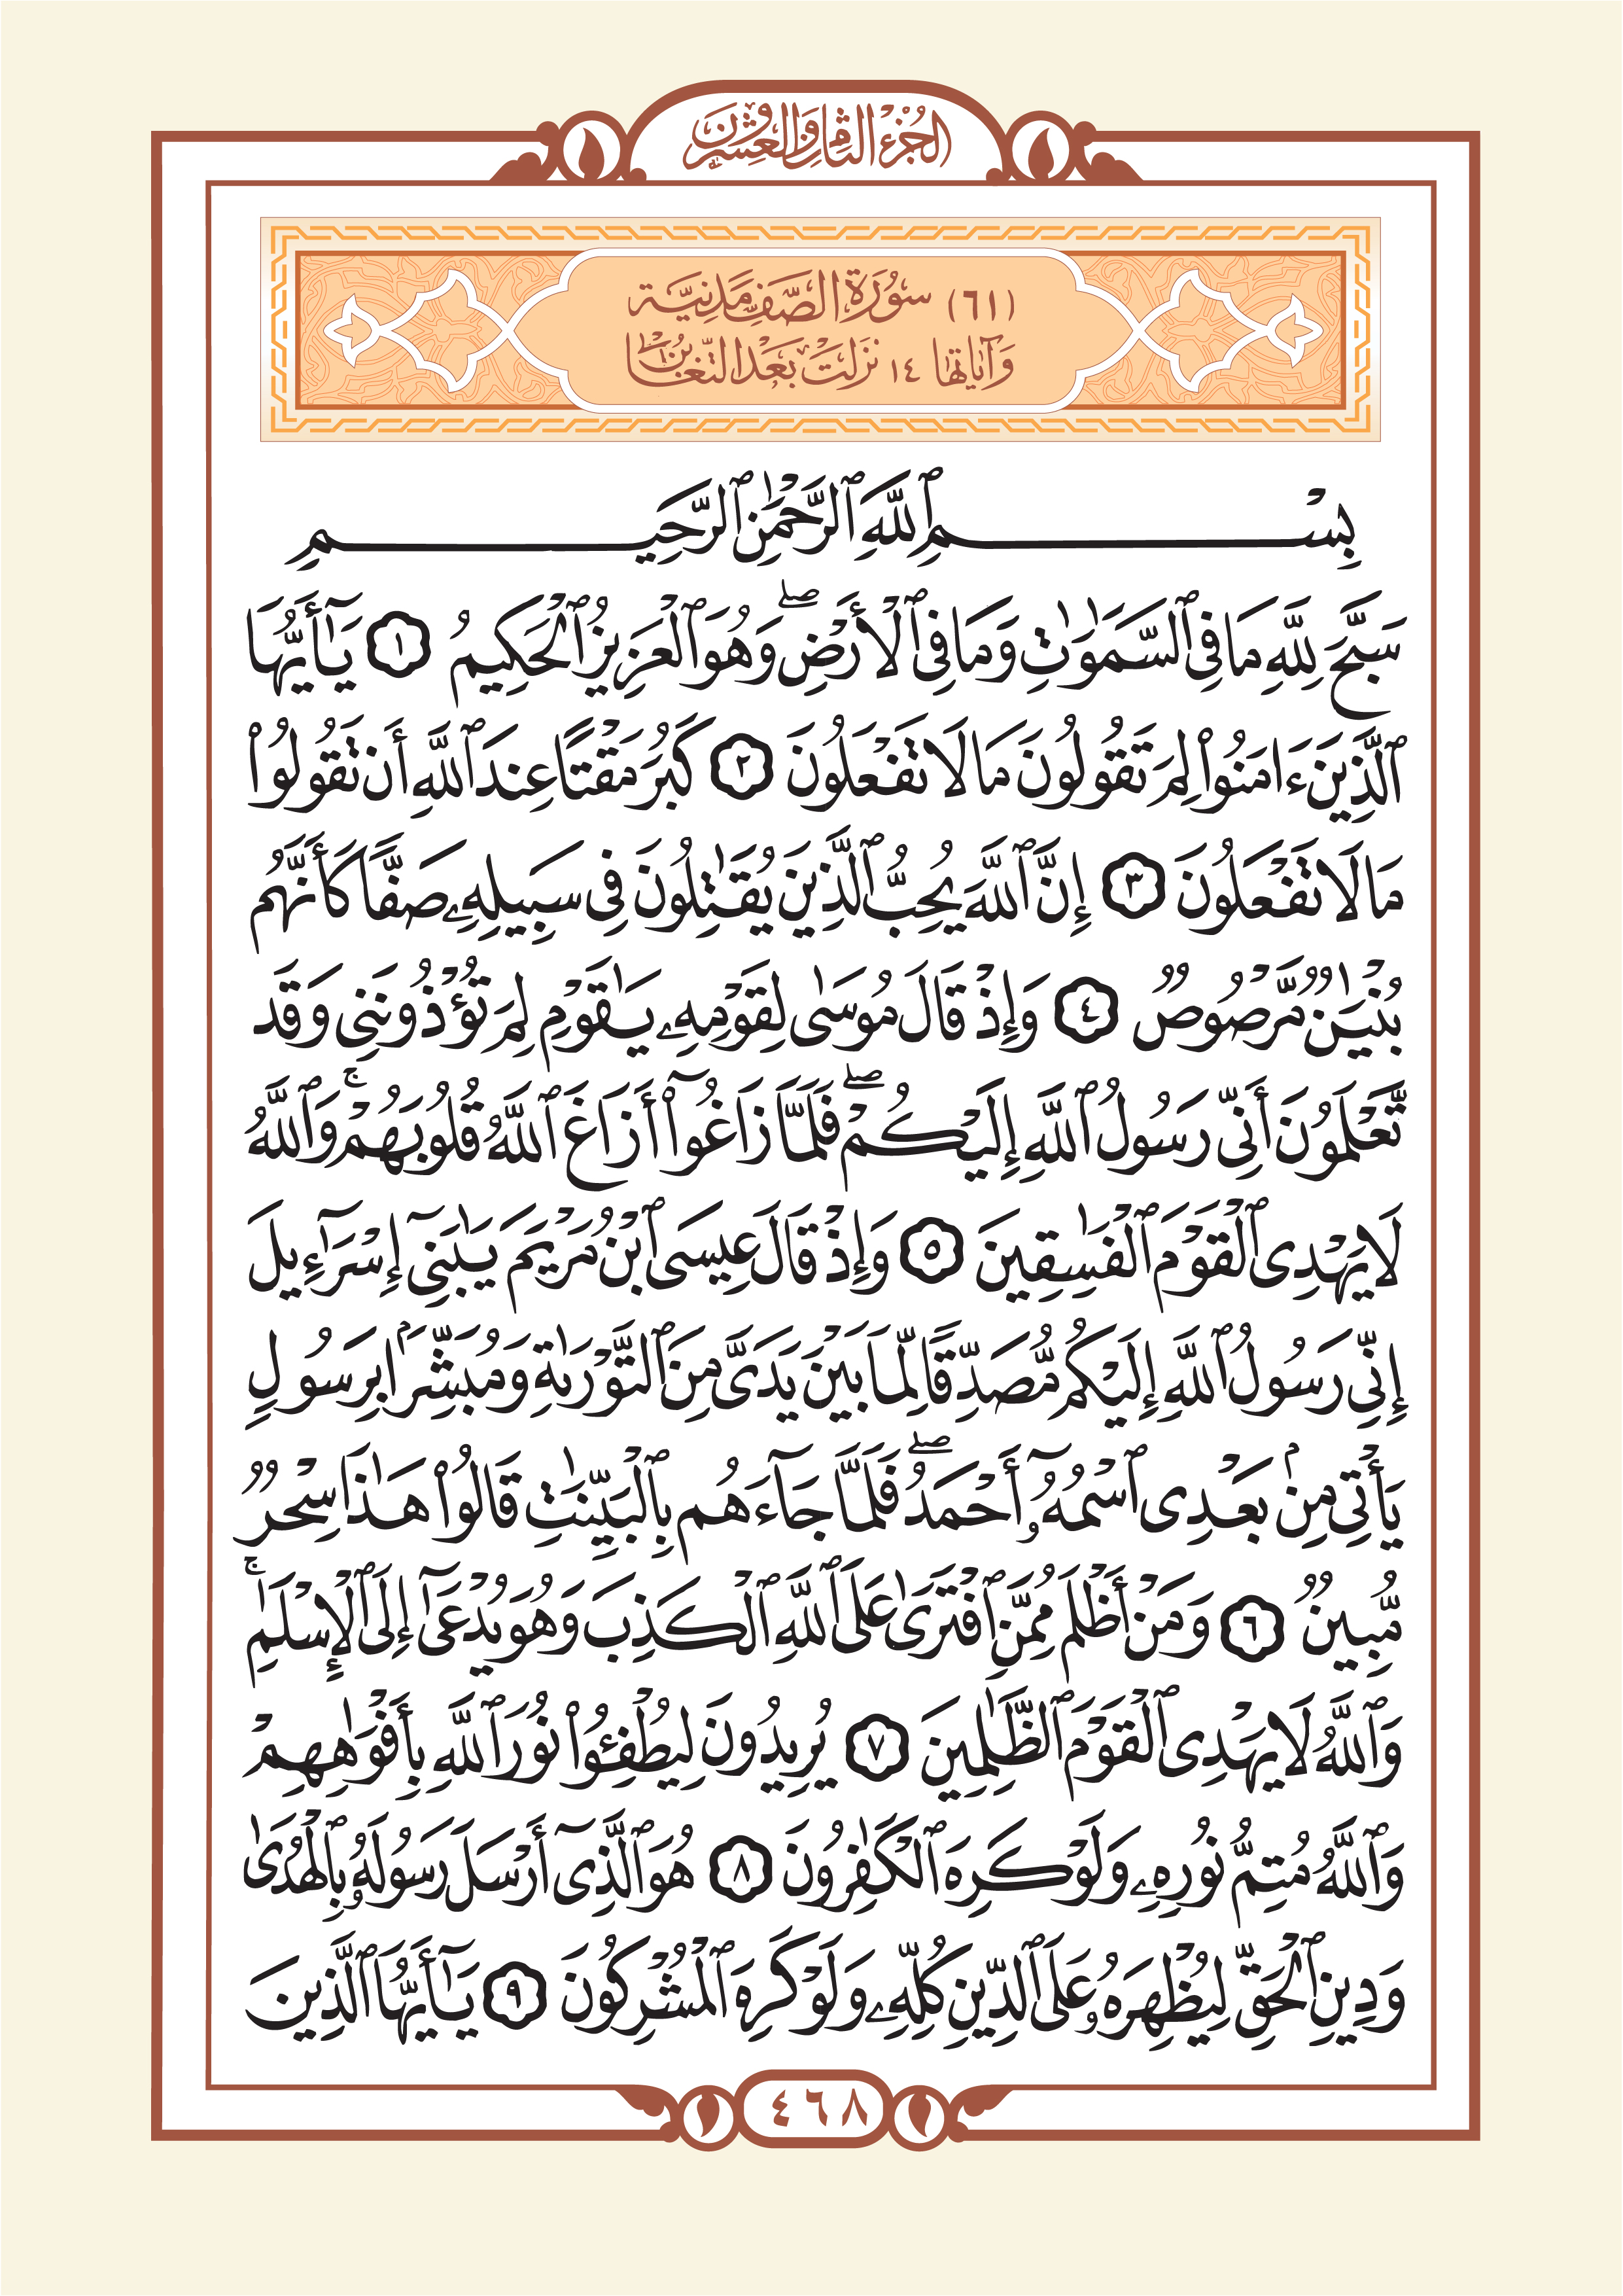 الجُزْءُ الثَّامِنُ وَالعِشْرُونَ
(٦١) سُورَةُ الصَّفِّ مَدَنِيَّة
وَآيَاتُهَا ١٤ نَزَلَتْ بَعْدَ التَّغَابُنِ
بِسْمِ ٱللَّهِ ٱلرَّحْمَٰنِ ٱلرَّحِيمِ
سَبَّحَ لِلَّهِ مَا فِى ٱلسَّمَٰوَٰتِ وَمَا فِى ٱلْأَرْضِ ۖ وَهُوَ ٱلْعَزِيزُ ٱلْحَكِيمُ ١ يَٰٓأَيُّهَا
ٱلَّذِينَ ءَامَنُوا۟ لِمَ تَقُولُونَ مَا لَا تَفْعَلُونَ ٢ كَبُرَ مَقْتًا عِندَ ٱللَّهِ أَن تَقُولُوا۟
مَا لَا تَفْعَلُونَ ٣ إِنَّ ٱللَّهَ يُحِبُّ ٱلَّذِينَ يُقَٰتِلُونَ فِى سَبِيلِهِۦ صَفًّا كَأَنَّهُم
بُنْيَٰنٌ مَّرْصُوصٌ ٤ وَإِذْ قَالَ مُوسَىٰ لِقَوْمِهِۦ يَٰقَوْمِ لِمَ تُؤْذُونَنِى وَقَد
تَّعْلَمُونَ أَنِّى رَسُولُ ٱللَّهِ إِلَيْكُمْ ۖ فَلَمَّا زَاغُوٓا۟ أَزَاغَ ٱللَّهُ قُلُوبَهُمْ ۚ وَٱللَّهُ
لَا يَهْدِى ٱلْقَوْمَ ٱلْفَٰسِقِينَ ٥ وَإِذْ قَالَ عِيسَى ٱبْنُ مَرْيَمَ يَٰبَنِىٓ إِسْرَٰٓءِيلَ
إِنِّى رَسُولُ ٱللَّهِ إِلَيْكُم مُّصَدِّقًا لِّمَا بَيْنَ يَدَىَّ مِنَ ٱلتَّوْرَىٰةِ وَمُبَشِّرَۢا بِرَسُولٍ
يَأْتِى مِنۢ بَعْدِى ٱسْمُهُۥٓ أَحْمَدُ ۖ فَلَمَّا جَآءَهُم بِٱلْبَيِّنَٰتِ قَالُوا۟ هَٰذَا سِحْرٌ
مُّبِينٌ ٦ وَمَنْ أَظْلَمُ مِمَّنِ ٱفْتَرَىٰ عَلَى ٱللَّهِ ٱلْكَذِبَ وَهُوَ يُدْعَىٰٓ إِلَى ٱلْإِسْلَٰمِ ۚ
وَٱللَّهُ لَا يَهْدِى ٱلْقَوْمَ ٱلظَّٰلِمِينَ ٧ يُرِيدُونَ لِيُطْفِـُٔوا۟ نُورَ ٱللَّهِ بِأَفْوَٰهِهِمْ
وَٱللَّهُ مُتِمُّ نُورِهِۦ وَلَوْ كَرِهَ ٱلْكَٰفِرُونَ ٨ هُوَ ٱلَّذِىٓ أَرْسَلَ رَسُولَهُۥ بِٱلْهُدَىٰ
وَدِينِ ٱلْحَقِّ لِيُظْهِرَهُۥ عَلَى ٱلدِّينِ كُلِّهِۦ وَلَوْ كَرِهَ ٱلْمُشْرِكُونَ ٩ يَٰٓأَيُّهَا ٱلَّذِينَ
٤٦٨